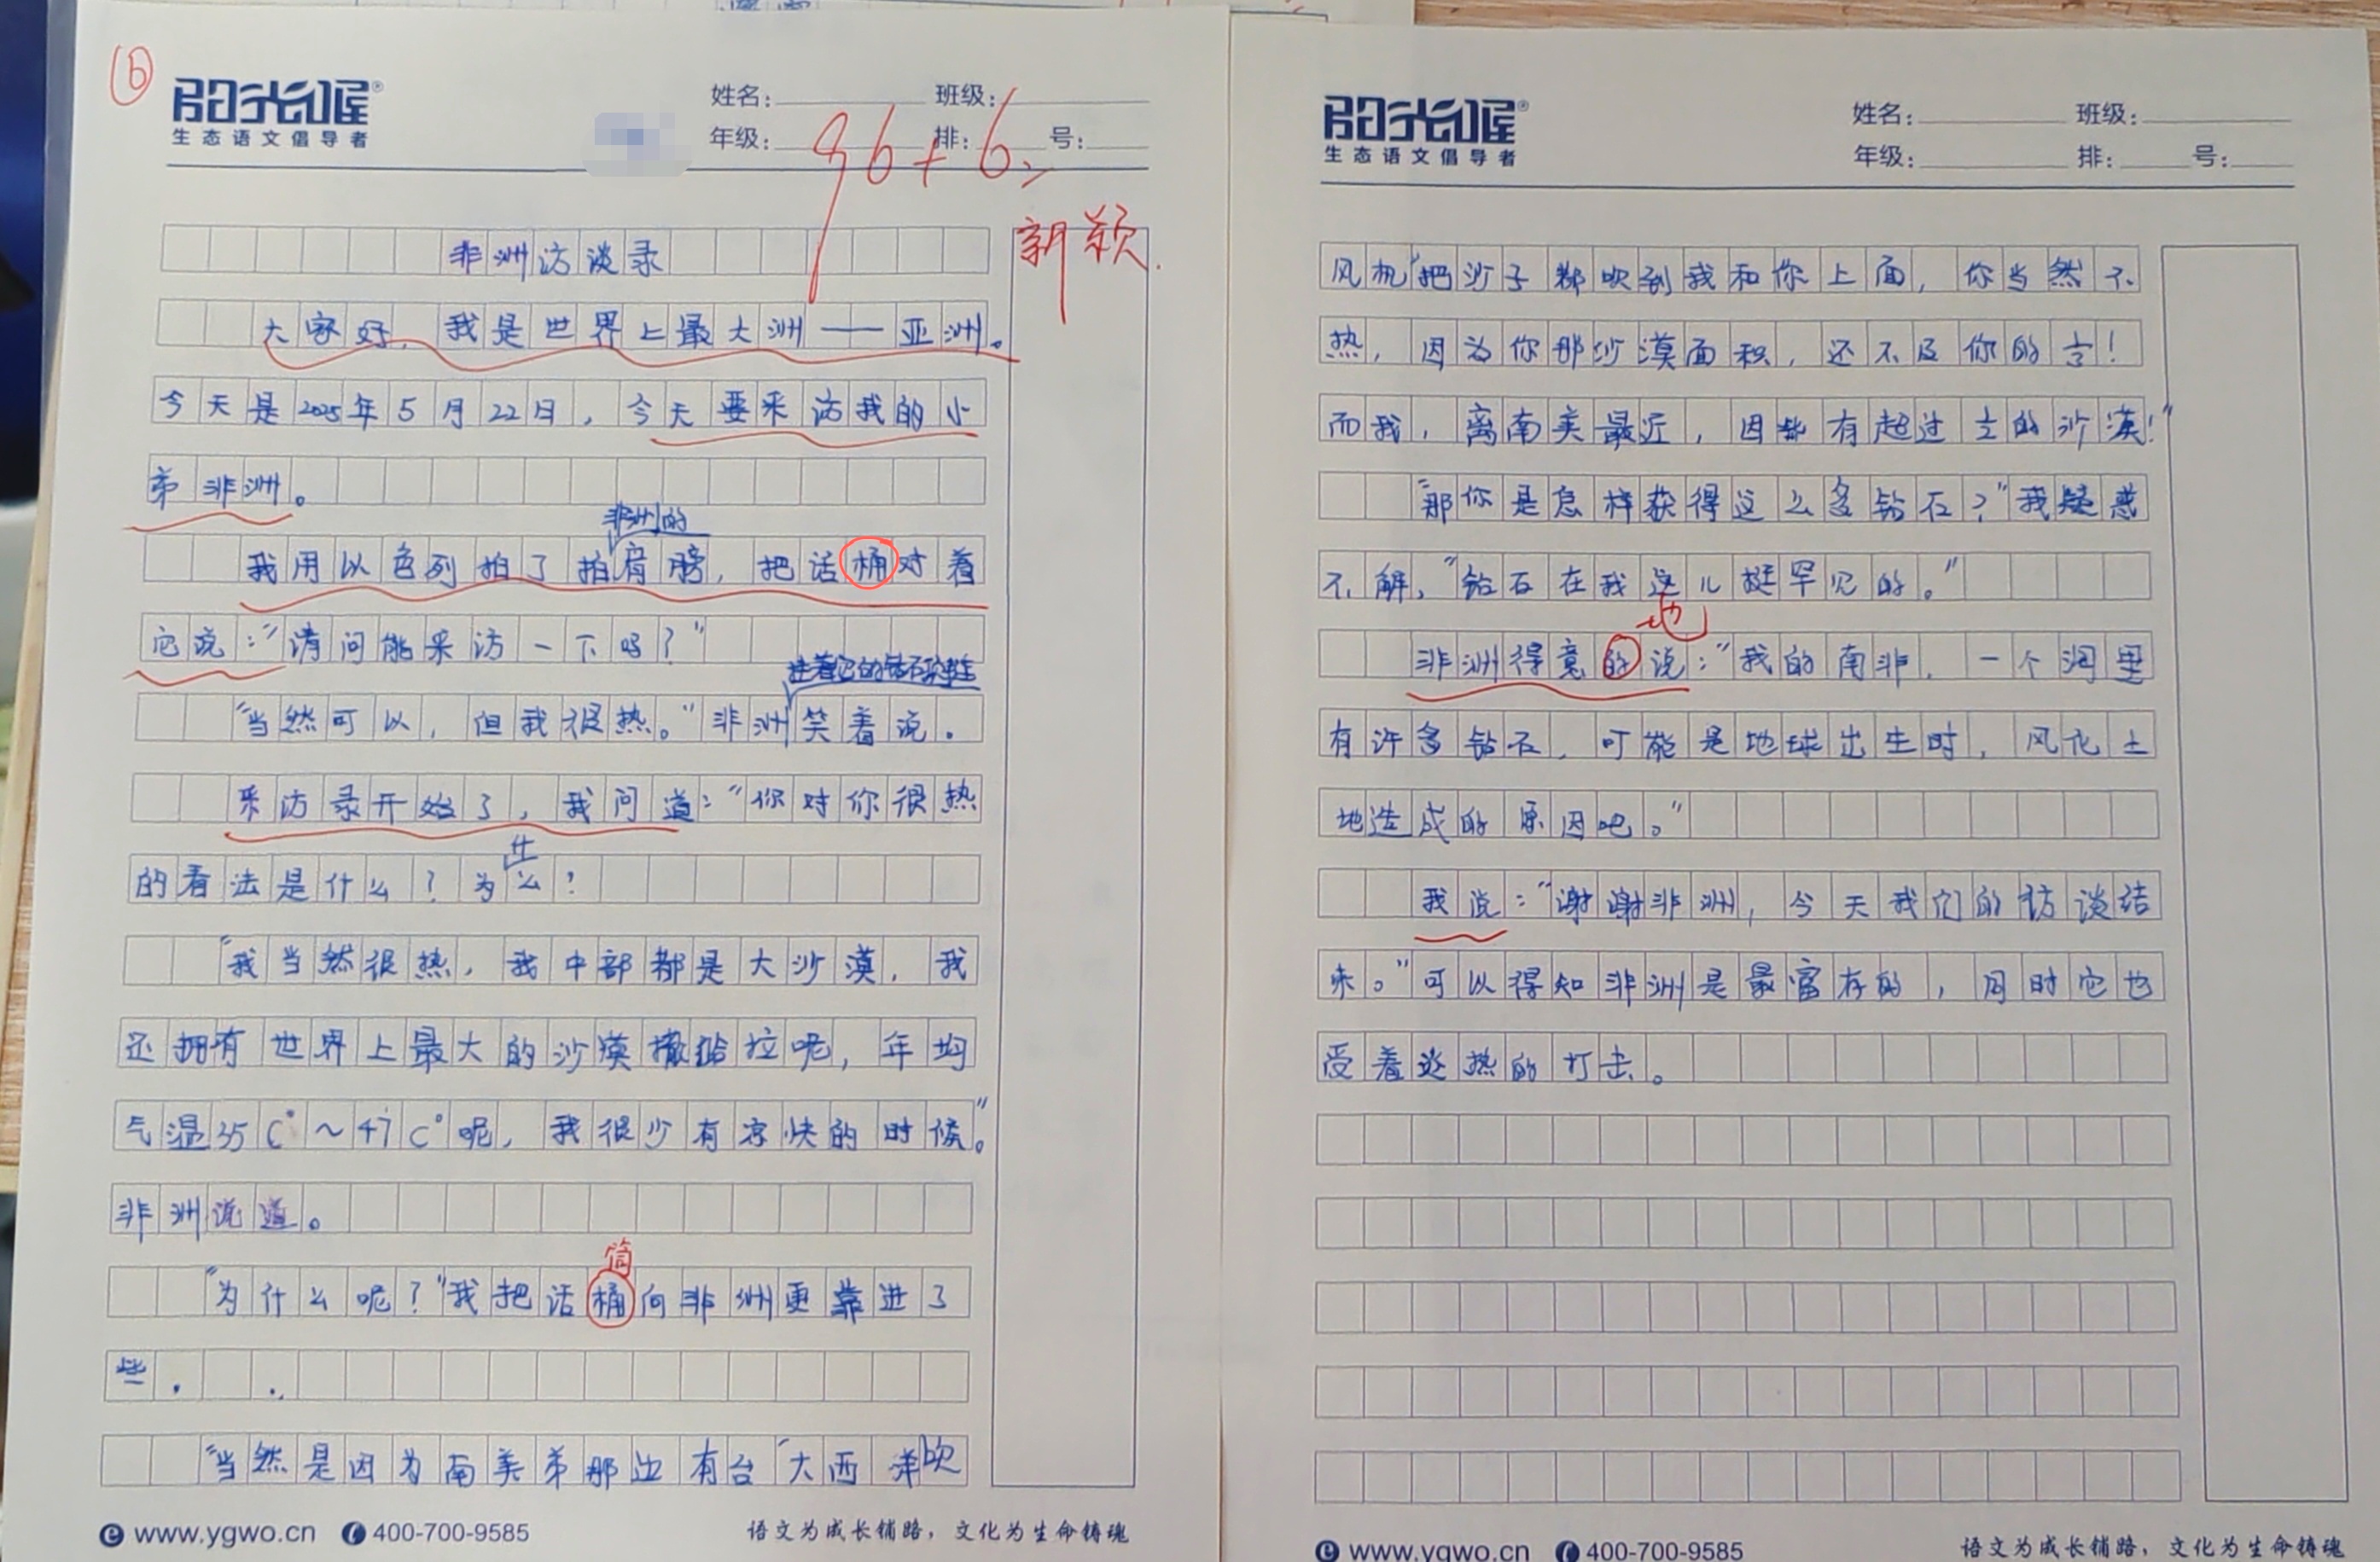 6
阳光喔®
生态语文倡导者
姓名：
班级：
年级：
排：
号：
96+6
新颖
非洲访谈录
大家好，我是世界上最大洲——亚洲。
今天是2025年5月22日，今天要采访我的小
弟非洲。
非洲的
我用以色列拍了拍肩膀，把话桶对着
它说："请问能采访一下吗？"
"当然可以，但我很热。"非洲笑着说。
采访录开始了，我问道："你对你很热
什
的看法是什么？为么？
"我当然很热，我中部都是大沙漠，我
还拥有世界上最大的沙漠撒哈拉呢，年均
气温35C°～47C°呢，我很少有凉快的时候。"
非洲说道。
筒
"为什么呢？"我把话桶向非洲更靠进了
些。
"当然是因为南美弟那边有台"大西洋吹
www.ygwo.cn 400-700-9585
语文为成长铺路，文化为生命铸魂
阳光喔®
生态语文倡导者
姓名：
班级：
年级：
排：
号：
风机"把沙子都吹到我和你上面，你当然不
热，因为你那沙漠面积，还不及你的！
而我，离南美最近，因此有超过的沙漠！"
"那你是怎样获得这么多钻石？"我疑惑
不解，"钻石在我这儿挺罕见的。"
地
非洲得意的说："我的南非，一个洞里
有许多钻石，可能是地球出生时，风化土
地造成的原因吧。"
我说："谢谢非洲，今天我们的访谈结
束。"可以得知非洲是最富存的，同时它也
受着炎热的打击。
www.ygwo.cn 400-700-9585
语文为成长铺路，文化为生命铸魂